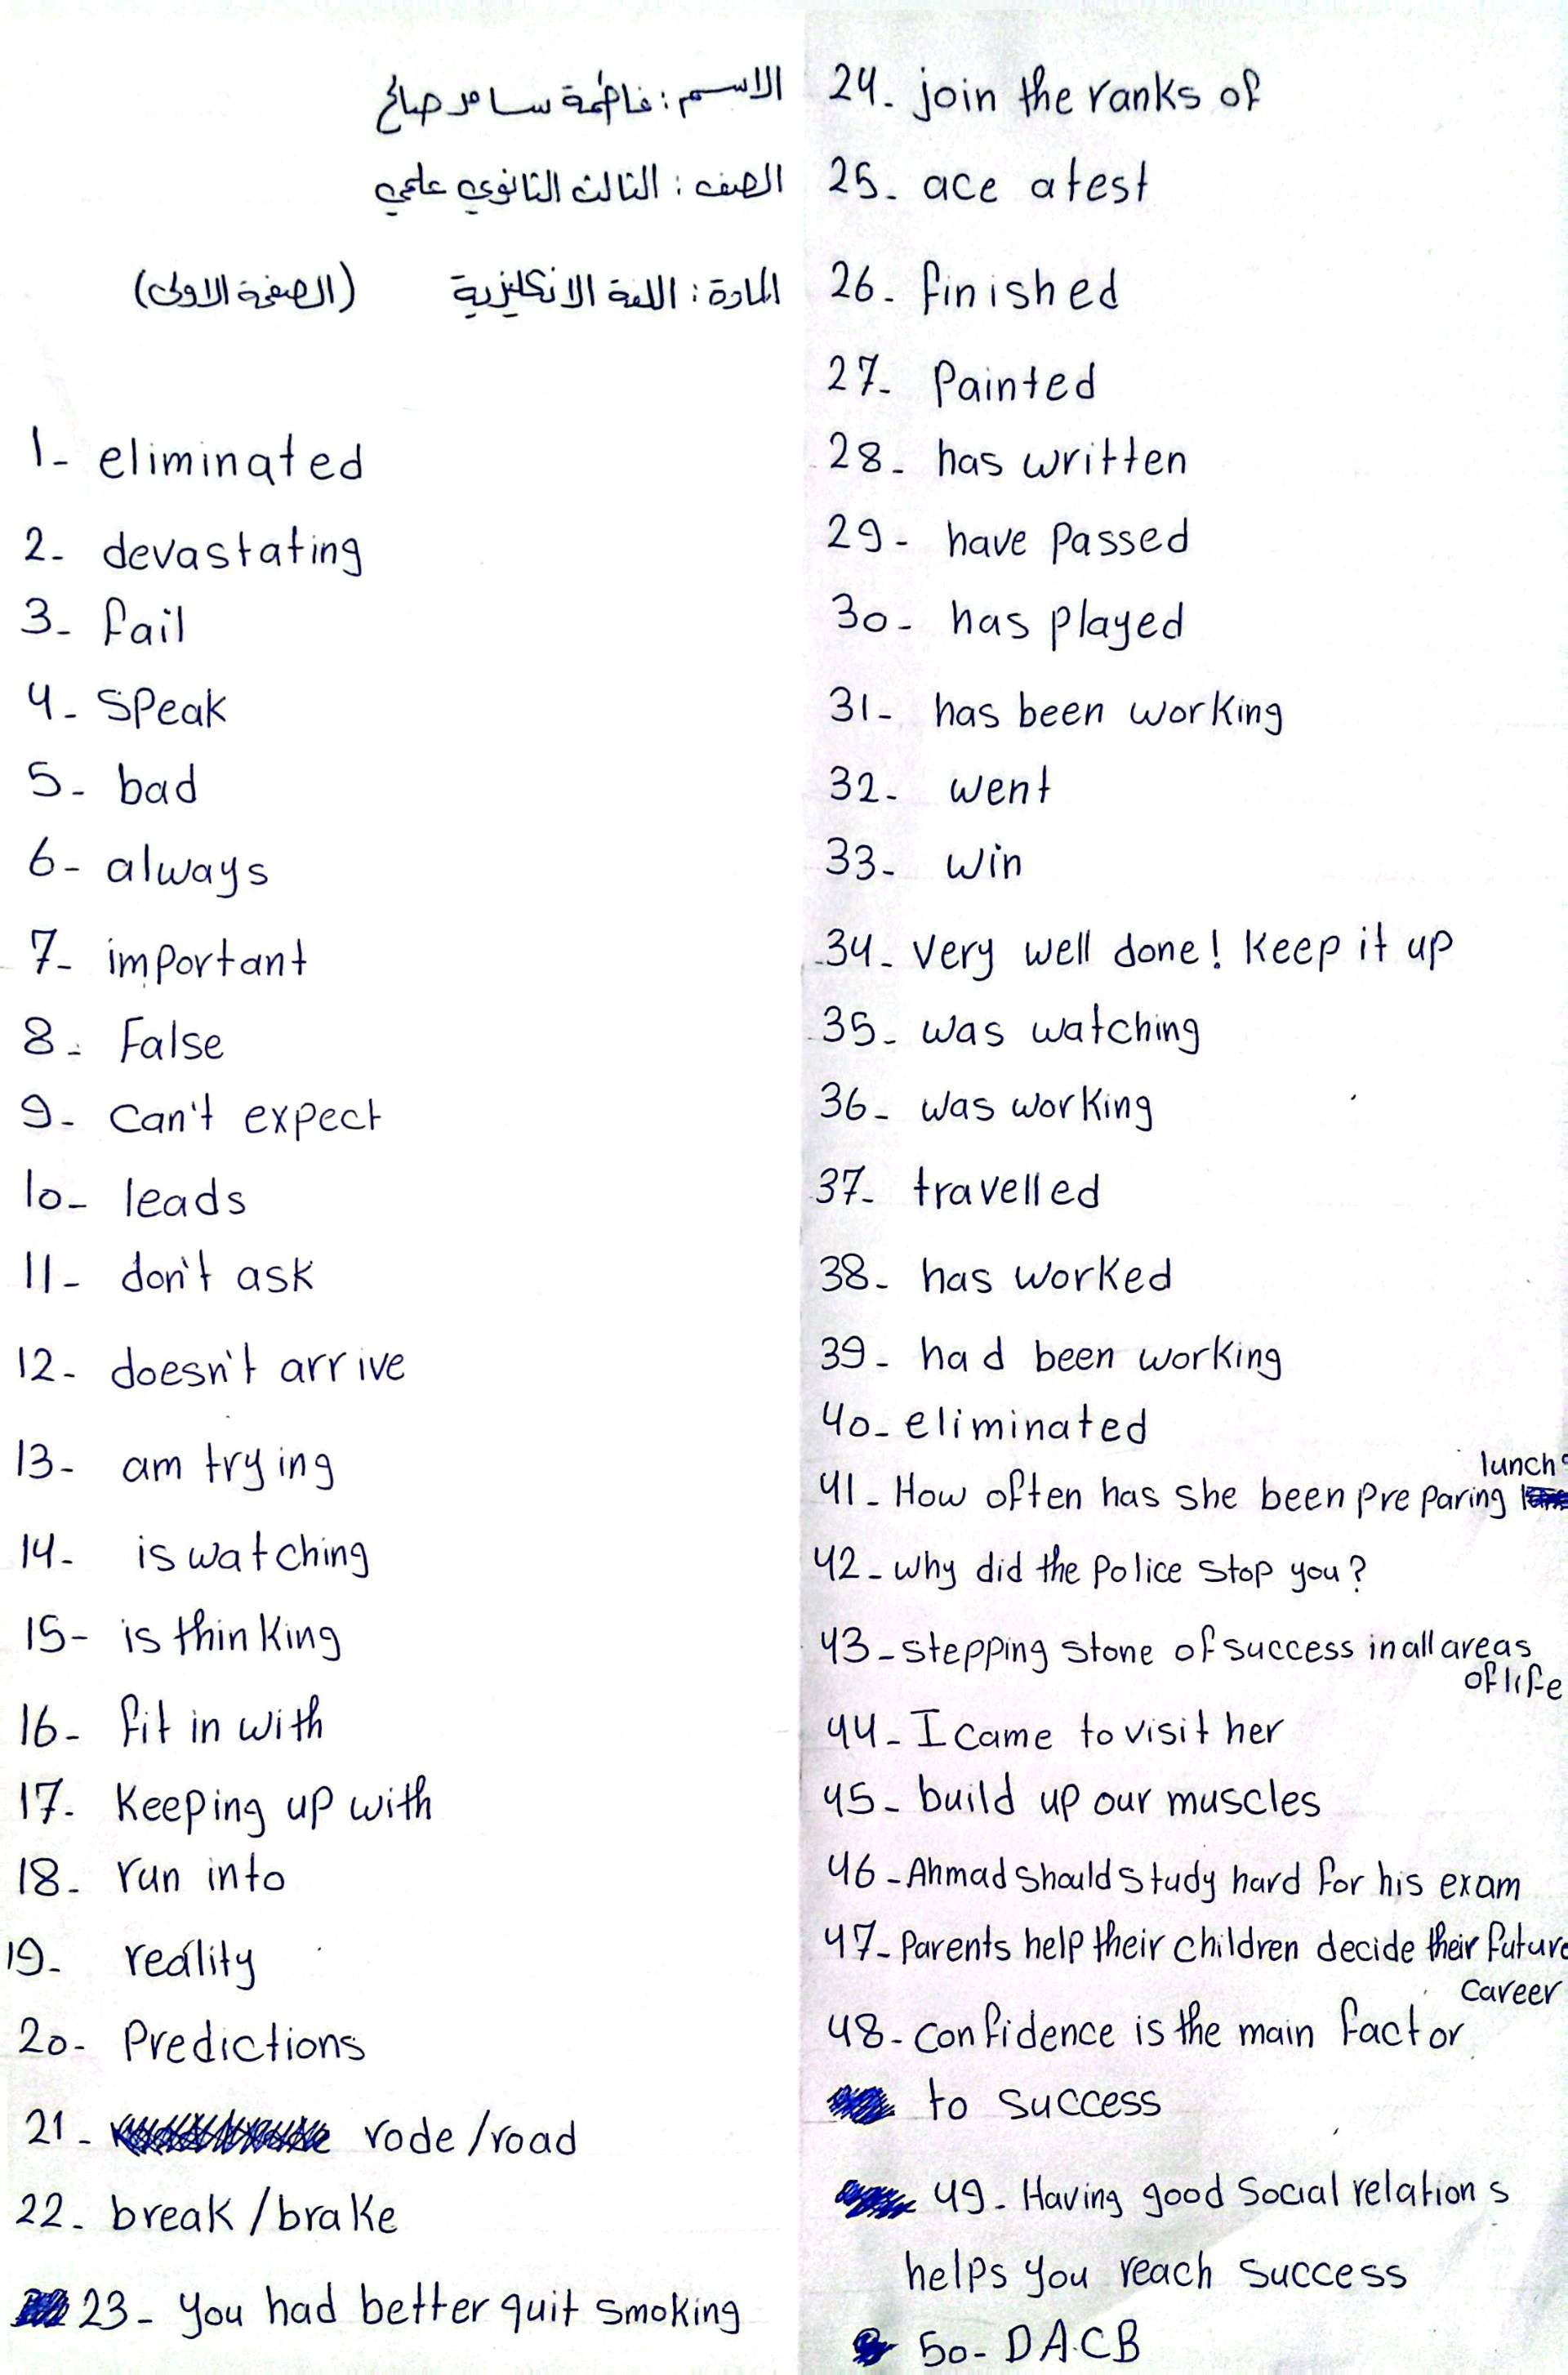 الاسم : فاطمة سامر صالح
الصف : الثالث الثانوي علمي
المادة : اللغة الانكليزية (الصفحة الاولى)
1- eliminated
2- devastating
3- fail
4- Speak
5- bad
6- always
7- important
8- False
9- Can't expect
10- leads
11- don't ask
12- doesn't arrive
13- am trying
14- is watching
15- is thinking
16- fit in with
17- Keeping up with
18- run into
19- reality
20- Predictions
21- rode / road
22- break / brake
23- you had better quit smoking
24- join the ranks of
25- ace a test
26- finished
27- Painted
28- has written
29- have passed
30- has played
31- has been working
32- went
33- win
34- Very well done! Keep it up
35- was watching
36- was working
37- travelled
38- has worked
39- had been working
40- eliminated
41- How often has she been preparing lunch?
42- why did the Police stop you?
43- stepping stone of success in all areas
of life
44- I came to visit her
45- build up our muscles
46- Ahmad should study hard for his exam
47- Parents help their children decide their future
Career
48- confidence is the main factor
to success
49- Having good Social relations
helps you reach success
50- DACB